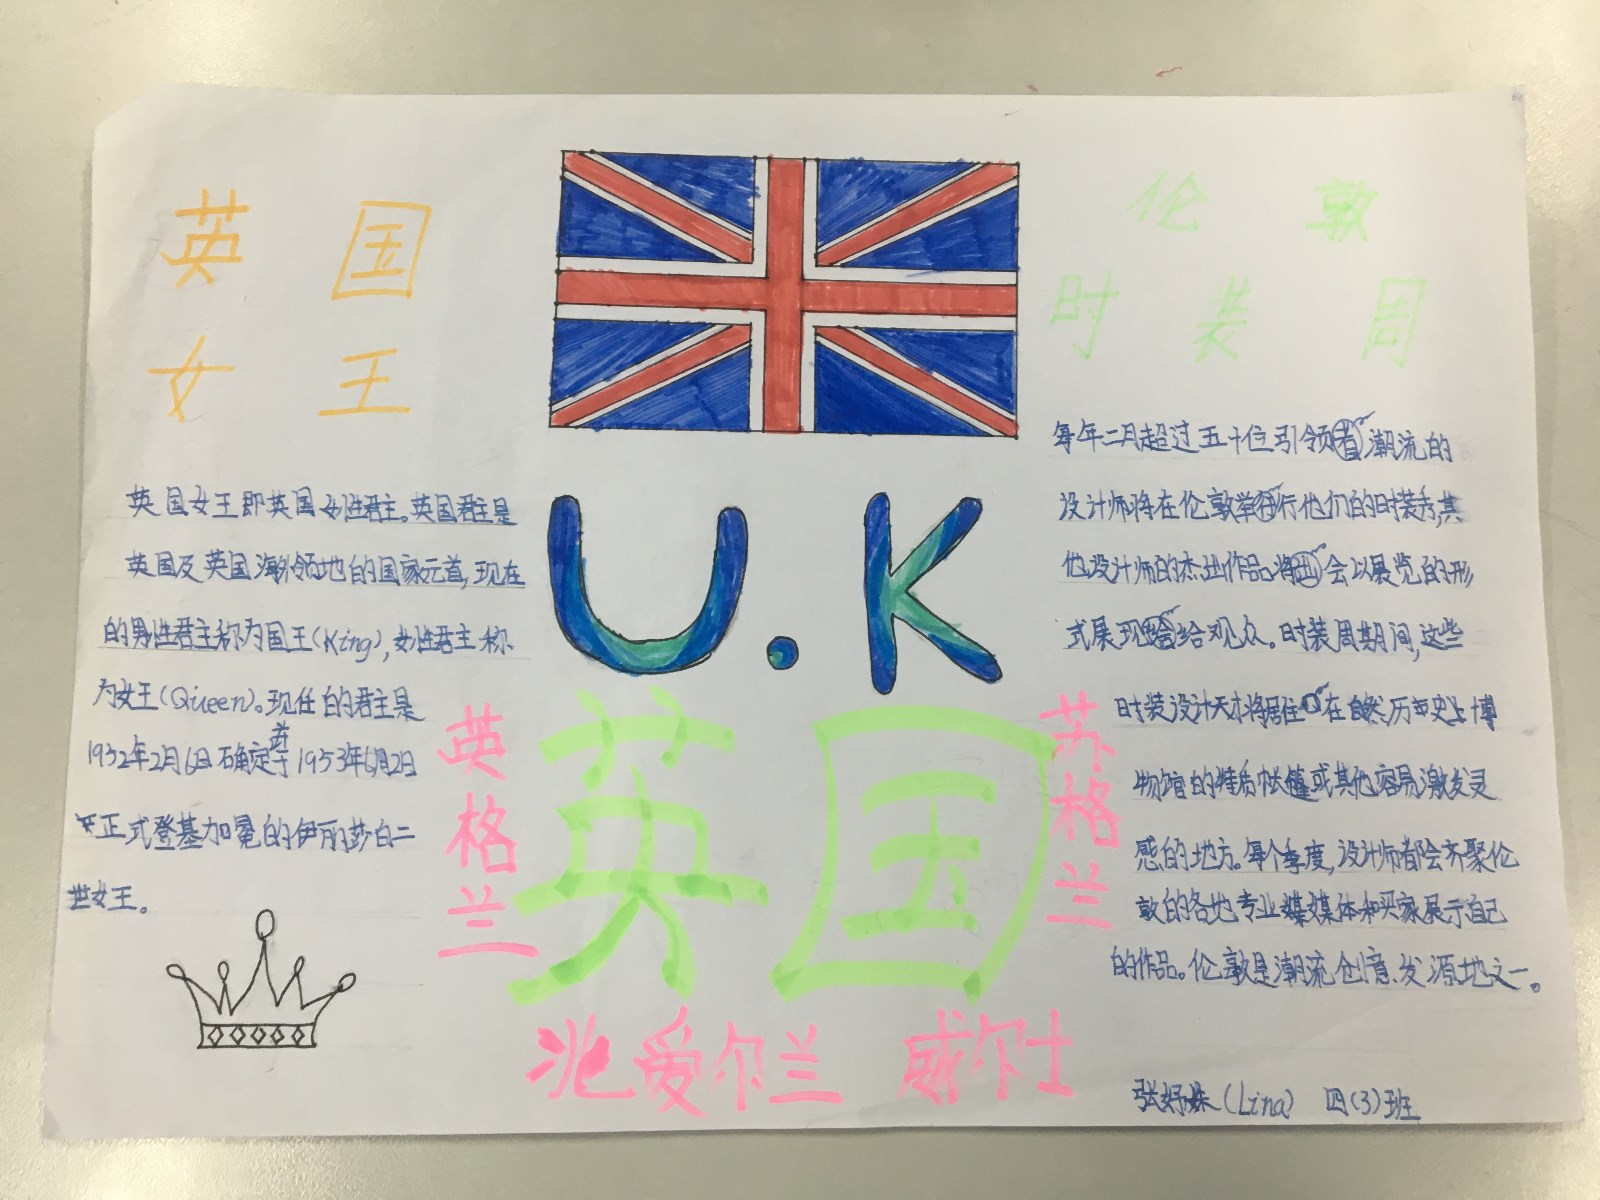 英国
女王
英国女王即英国女性君主。英国君主是
英国及英国海外领地的国家元首,现在
的男性君主称为国王(King),女性君主称
为女王(Queen)。现任的君主是
1952年2月6日确定并于1953年6月2日
正式登基加冕的伊丽莎白二
世女王。
U.K
英国
英格兰
苏格兰
北爱尔兰 威尔士
伦敦
时装周
每年二月超过五十位引领着潮流的
设计师将在伦敦举行他们的时装秀,其
他设计师的杰出作品将会以展览的形
式展现给观众。时装周期间,这些
时装设计天才将居住在自然历史博
物馆的帐篷或其他容易激发灵
感的地方。每个季度,设计师都会齐聚伦
敦向各地专业媒体和买家展示自己
的作品。伦敦是潮流创意发源地之一。
张妤姝(Lina) 四(3)班